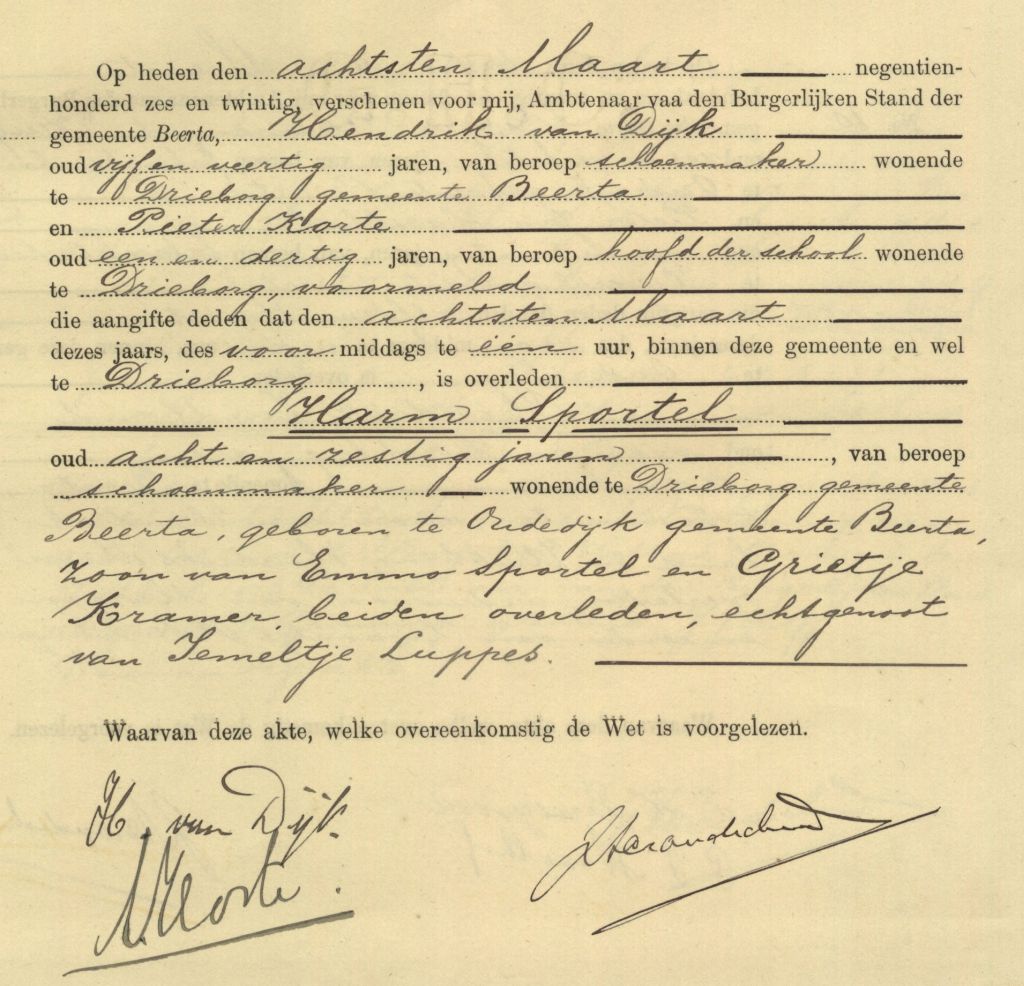 Op heden den achtsten Maart negentien-
honderd zes en twintig, verschenen voor mij, Ambtenaar vaa den Burgerlijken Stand der
gemeente Beerta, Hendrik van Dijk
oud vijf en veertig jaren, van beroep schoenmaker wonende
te Drieborg gemeente Beerta
en Pieter Korte
oud een en dertig jaren, van beroep hoofd der school wonende
te Drieborg, voormeld
die aangifte deden dat den achtsten Maart
dezes jaars, des voormiddags te één uur, binnen deze gemeente en wel
te Drieborg, is overleden
Harm Sportel
oud acht en zestig jaren, van beroep
schoenmaker wonende te Drieborg gemeente
Beerta, geboren te Oudedijk gemeente Beerta,
zoon van Emmo Sportel en Grietje
Kramer, beiden overleden, echtgenoot
van Temeltje Luppes.
Waarvan deze akte, welke overeenkomstig de Wet is voorgelezen.
H. van Dijk.
Korte.